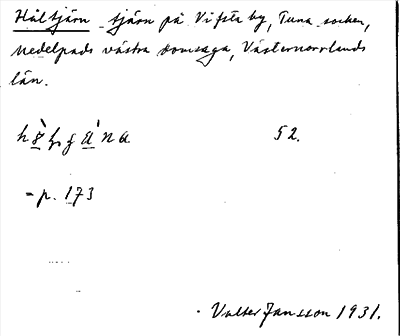 Håltjärn tjärn på Vifsta by, Tuna socken,
Medelpads västra domsaga, Västernorrlands
län.
52.
- p. 173
Valter Jansson 1931.